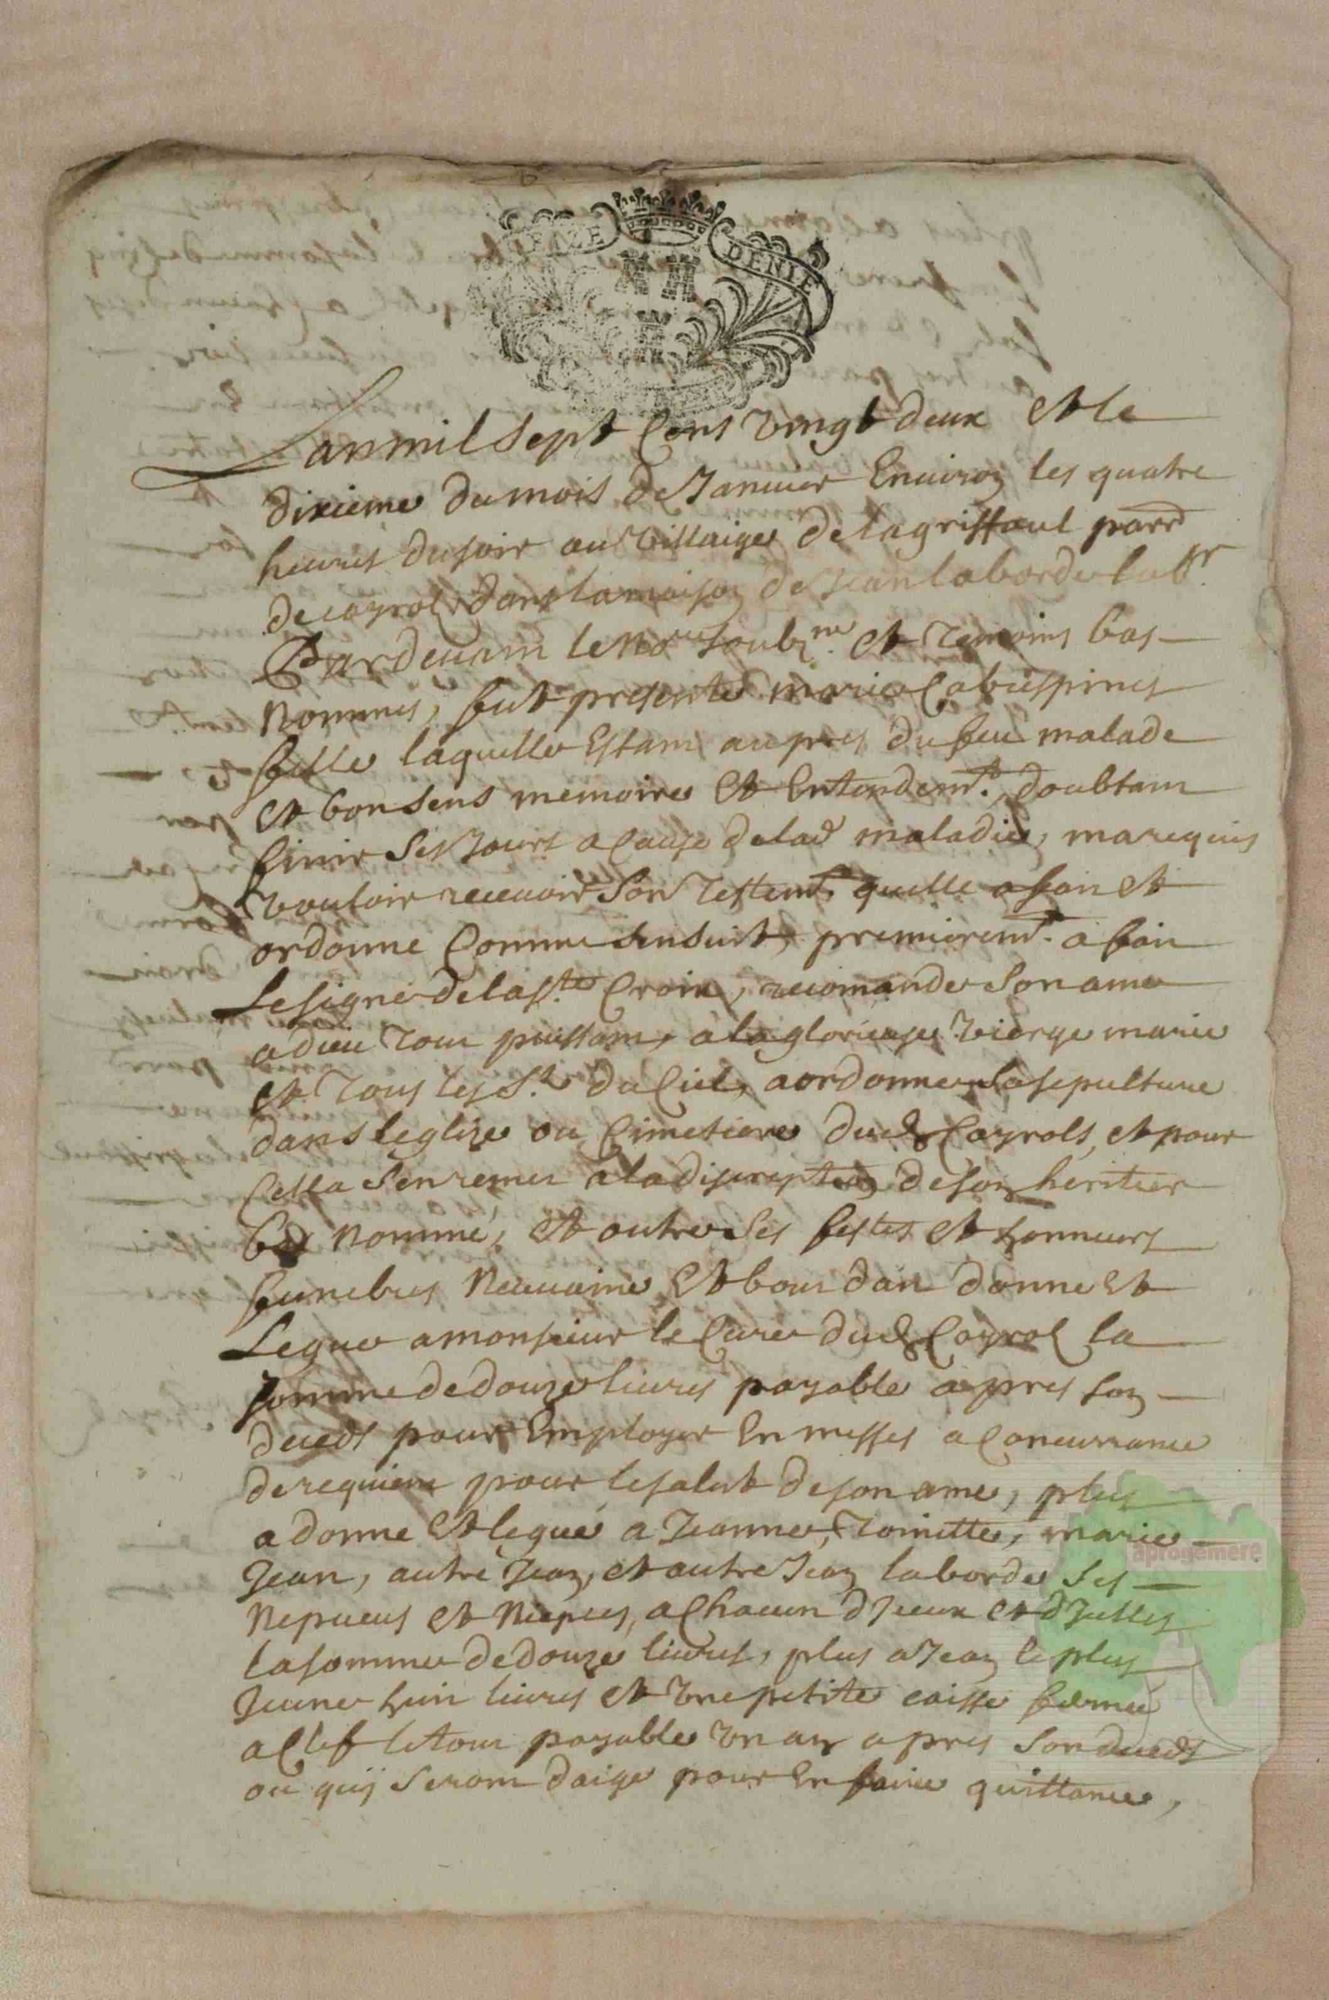 DENIE
Lan mil sept Cens vingt deux Et le
dixieme du mois de Januier Enuiron les quatre
heures du soir au Village de lagriffoul parr
de cayrols dans la maison de Jean laborde labr
Pardeuam le Nore soubzne et temoins bas
Nommes, fut presente marie Cabrespines
fille laquelle Estam aupres du feu malade
et bon sens memoire Et Entendemt. doubtam
finir ses Jours a Cause de lad maladie, ma requis
vouloir receuoir son testemt. quelle a fait et
ordonne Comme sensuit, premieremt. a fait
Le signe de la ste Croix, recomande son ame
a dieu tout puissam, a la glorieuse Vierge marie
et tous les sts du Ciel, a ordonne sa sepulture
dans leglize ou Cimetiere dud Cayrols, et pour
Cella sen remet a la discreption de son heritier
bas nommé, et outre ses festes et honneurs
funebres Neuuaine Et bout dan donne et
Legue a monsieur le Cure dud Cayrol la
somme de douze liures payable apres son
deceds pour Employer En messes a Concurrance
de requiem pour le salut de son ame, plus
a donne et legué a Jeanne, Toinette, marie
Jean, autre Jean, et autre Jean laborde ses
Nepueus et Niepces, a Chacun dJceux et dJcelles
la somme de douze liures, plus a Jean le plus
Jeune huit liures et vne petite caisse fermée
a Clef le tout payable vn an apres son deceds
ou quij seront daige pour En faire quittance,
aprogemere